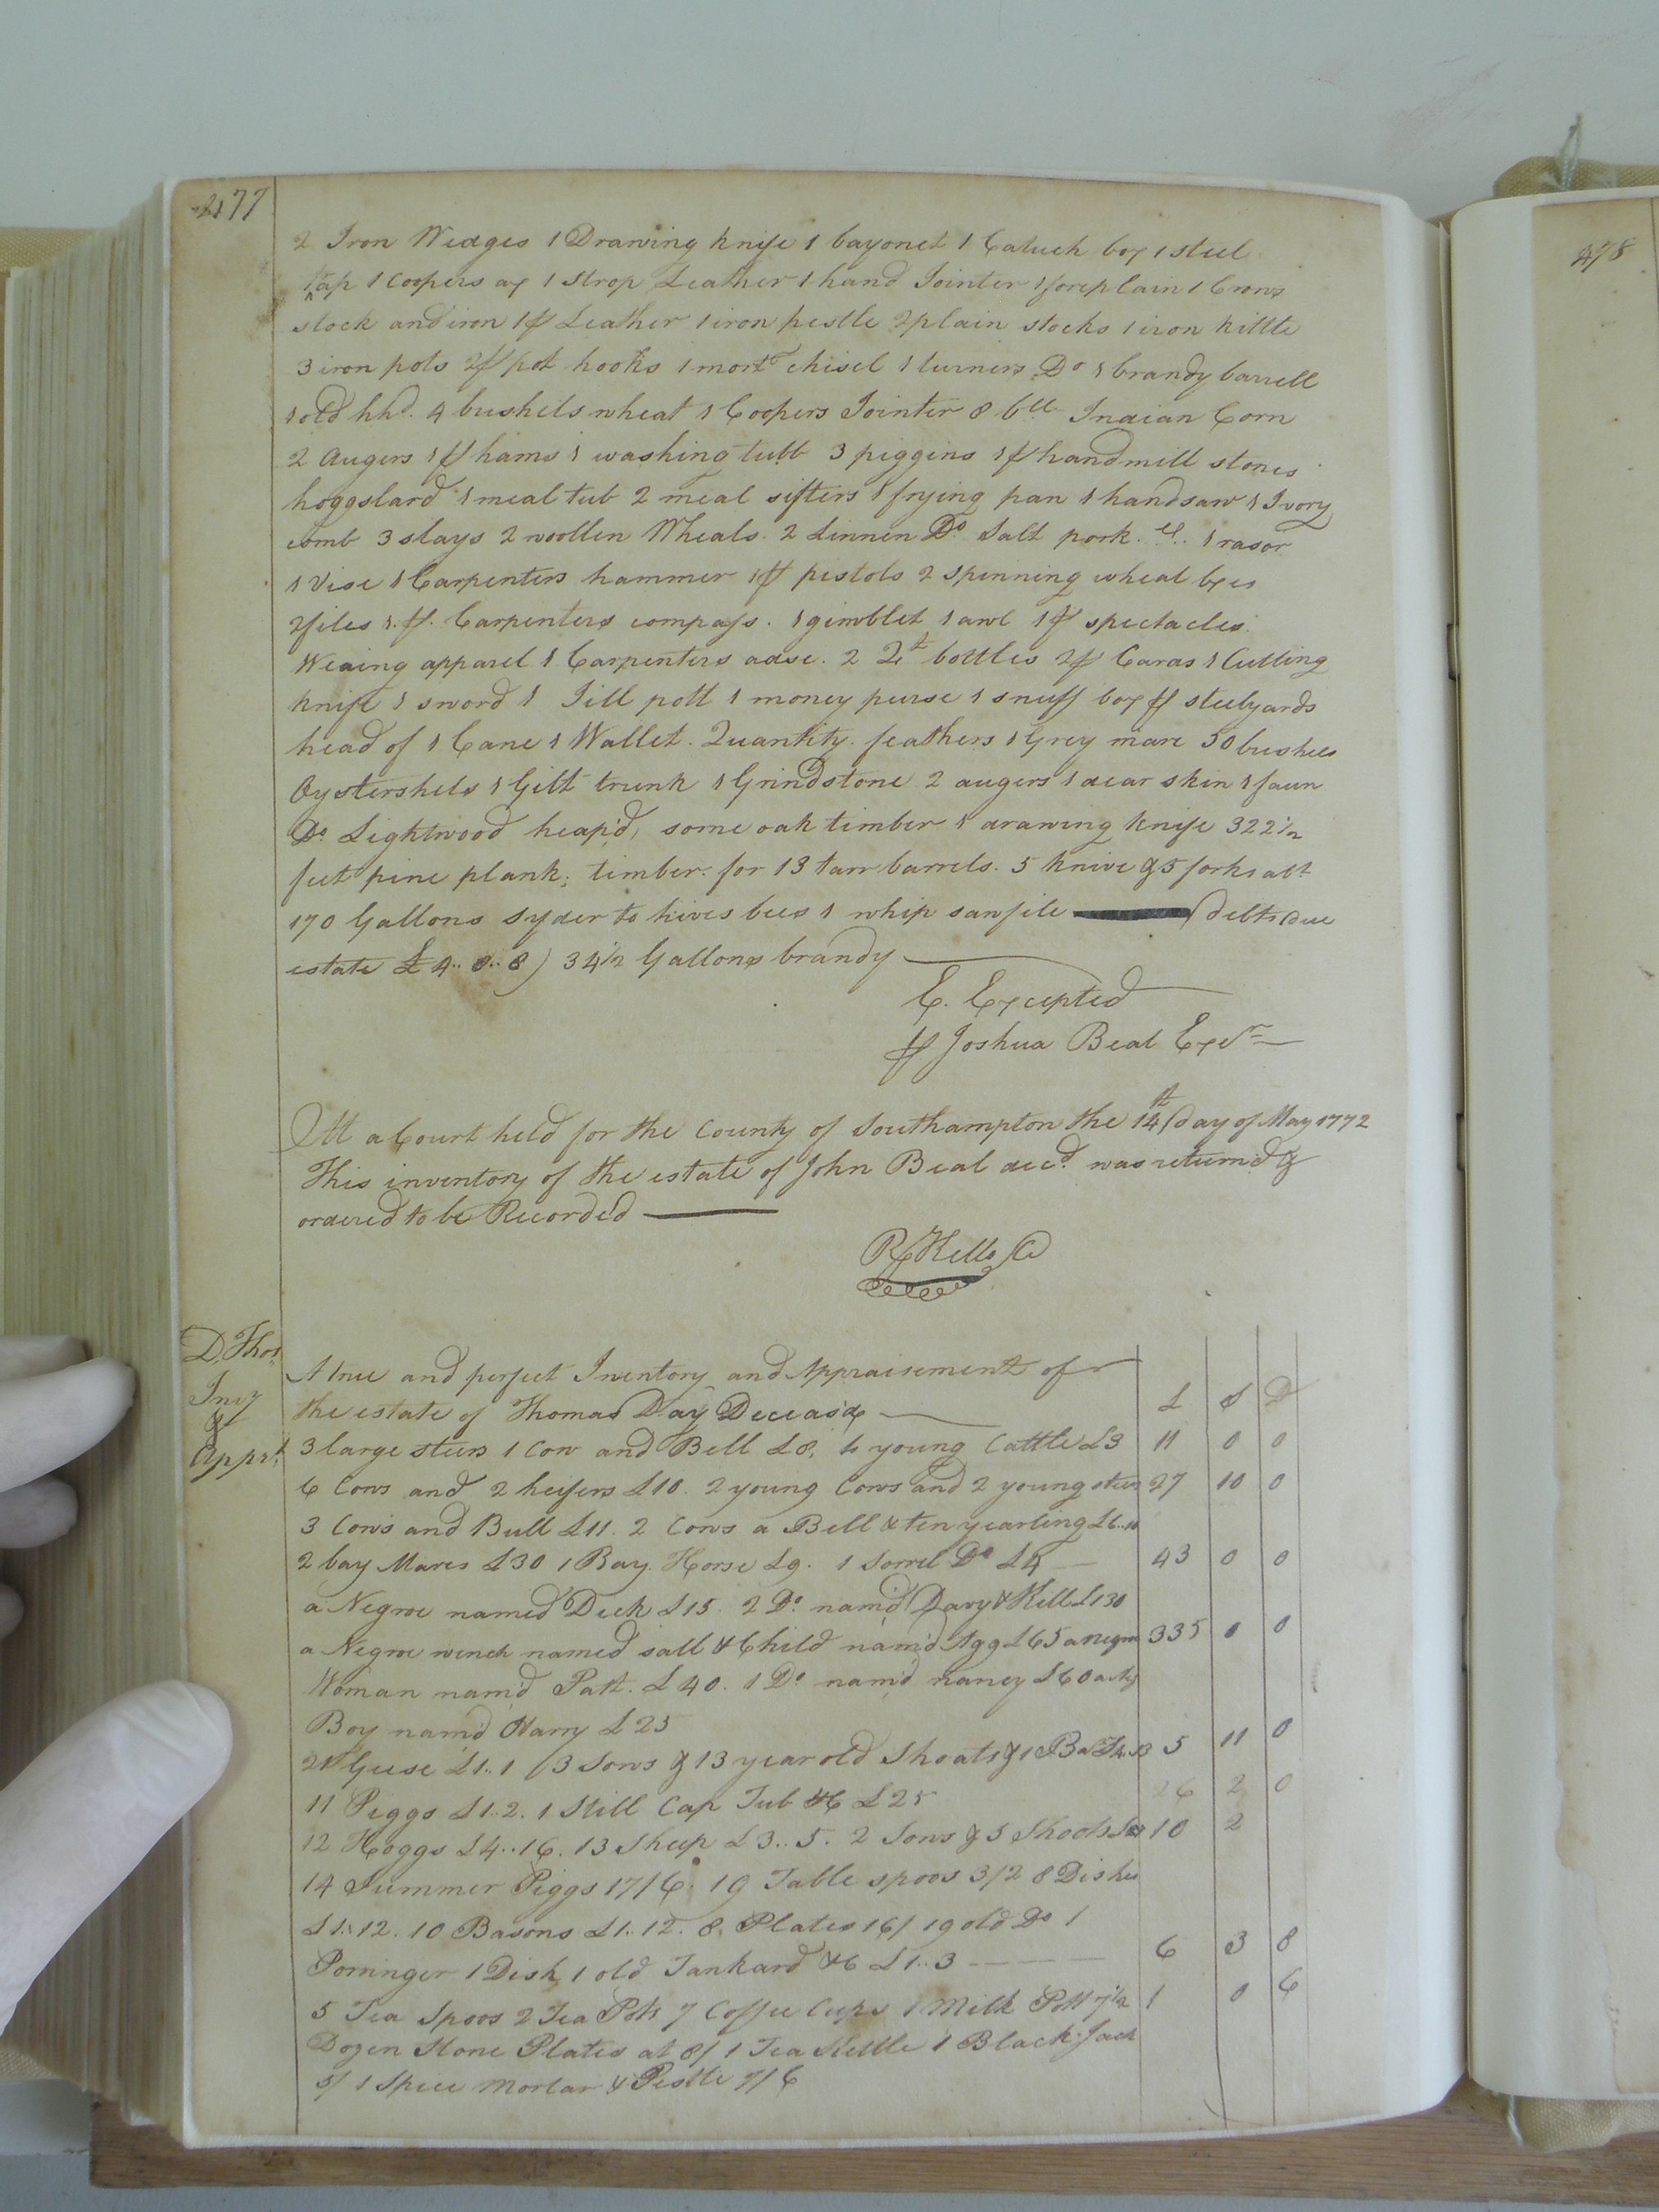 477
2 Iron Wedges 1 Drawing knife 1 bayonet 1 Catuch box 1 steel
trap 1 Coopers ax 1 Strop Leather 1 hand Jointer 1 foreplain 1 Crows
stock and iron 1 pr Leather 1 iron pestle 2 plain stocks 1 iron kittle
3 iron pots 2 pr pot hooks 1 morte chisel 1 turners Do 1 brandy barrell
1 old hhd. 4 bushels wheat 1 Coopers Jointer 8 bll Indian Corn
2 Augers 1 pr hams 1 washing tubb 3 piggins 1 pr handmill stones
hoggslard 1 meal tub 2 meal sifters 1 frying pan 1 handsaw 1 Ivory
comb 3 slays 2 woollen Wheals. 2 Linnen Do. Salt pork 1 rasor
1 Vise 1 Carpenters hammer 1 pr pestols 2 spinning wheal boxes
2 files 1 pr. Carpenters compass. 1 gimblet 1 awl 1 pr spectacles.
Weaing apparel 1 Carpenters adse. 2 Qt bottles 2 pr Cards 1 Cutting
knife 1 sword 1 Jill pott 1 money purse 1 snuff box pr steelyards
head of 1 Cane 1 Wallet. Quantity. feathers 1 Grey mare 50 bushels
Oystershels 1 Gilt trunk 1 Grindstone 2 augers 1 dear skin 1 faun
Do. Lightwood heap'd, some oak timber 1 drawing knife 322 1/2
feet pine plank; timber. for 13 tarr barrels. 5 knive & 5 forks abt
170 Gallons Syder 6 hives bees 1 whip sawfile (debts due
estate £4..8..8) 34 1/2 Gallons brandy
E. Excepted
pr Joshua Beal Exer
At a Court held for the County of Southampton the 14th day of May 1772
This inventory of the estate of John Beal decd. was return'd &
ordered to be Recorded
R Kello C
D. Thos.
Invy
&
Apprt.
A true and perfect Inventory and Appraisement of
the estate of Thomas Day Deceas'd £ S D
3 large steers 1 Cow and Bell £8. 6 young Cattle £3 11 0 0
6 Cows and 2 heifers £10. 2 young Cows and 2 young steers 27 10 0
3 Cows and Bull £11. 2 Cows a Bell & ten yearling £6..10
2 bay Mares £30 1 Bay. Horse £9. 1 Sorrel Do £4 43 0 0
a Negroe named Dick £15. 2 Do. nam'd Davy & Kill £130
a Negroe wench named sall & Child nam'd Agg £65 a Negroe 335 0 0
Woman nam'd Patt. £40. 1 Do nam'd nancy £60 a
Boy nam'd Harry £25
21 Geese £1..1 13 Sows & 13 year old Shoats & 1 5 11 0
11 Piggs £1.2. 1 Still Cap Tub &C £25 26 2 0
12 Hoggs £4..16. 13 Sheep £3..5. 2 Sows & 5 Shoots 10 2
14 Summer Piggs 17/6. 19 Table spoos 3/2 8 Dishes
£1..12. 10 Basons £1..12. 8. Plates 16/ 19 old Do 1
Porringer 1 Dish 1 old Tankard &C £1..3 6 3 8
5 Tea Spoos 2 Tea Pots 7 Coffee Cups 1 Milk Pott 7 1/2 1 0 6
Dozen Stone Plates at 8/ 1 Tea Kettle 1 Black Jack
5/ 1 Spice Mortar & Pestle 7/6
478